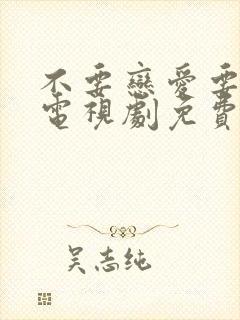 不要戀愛要
電視劇免費
吳志純